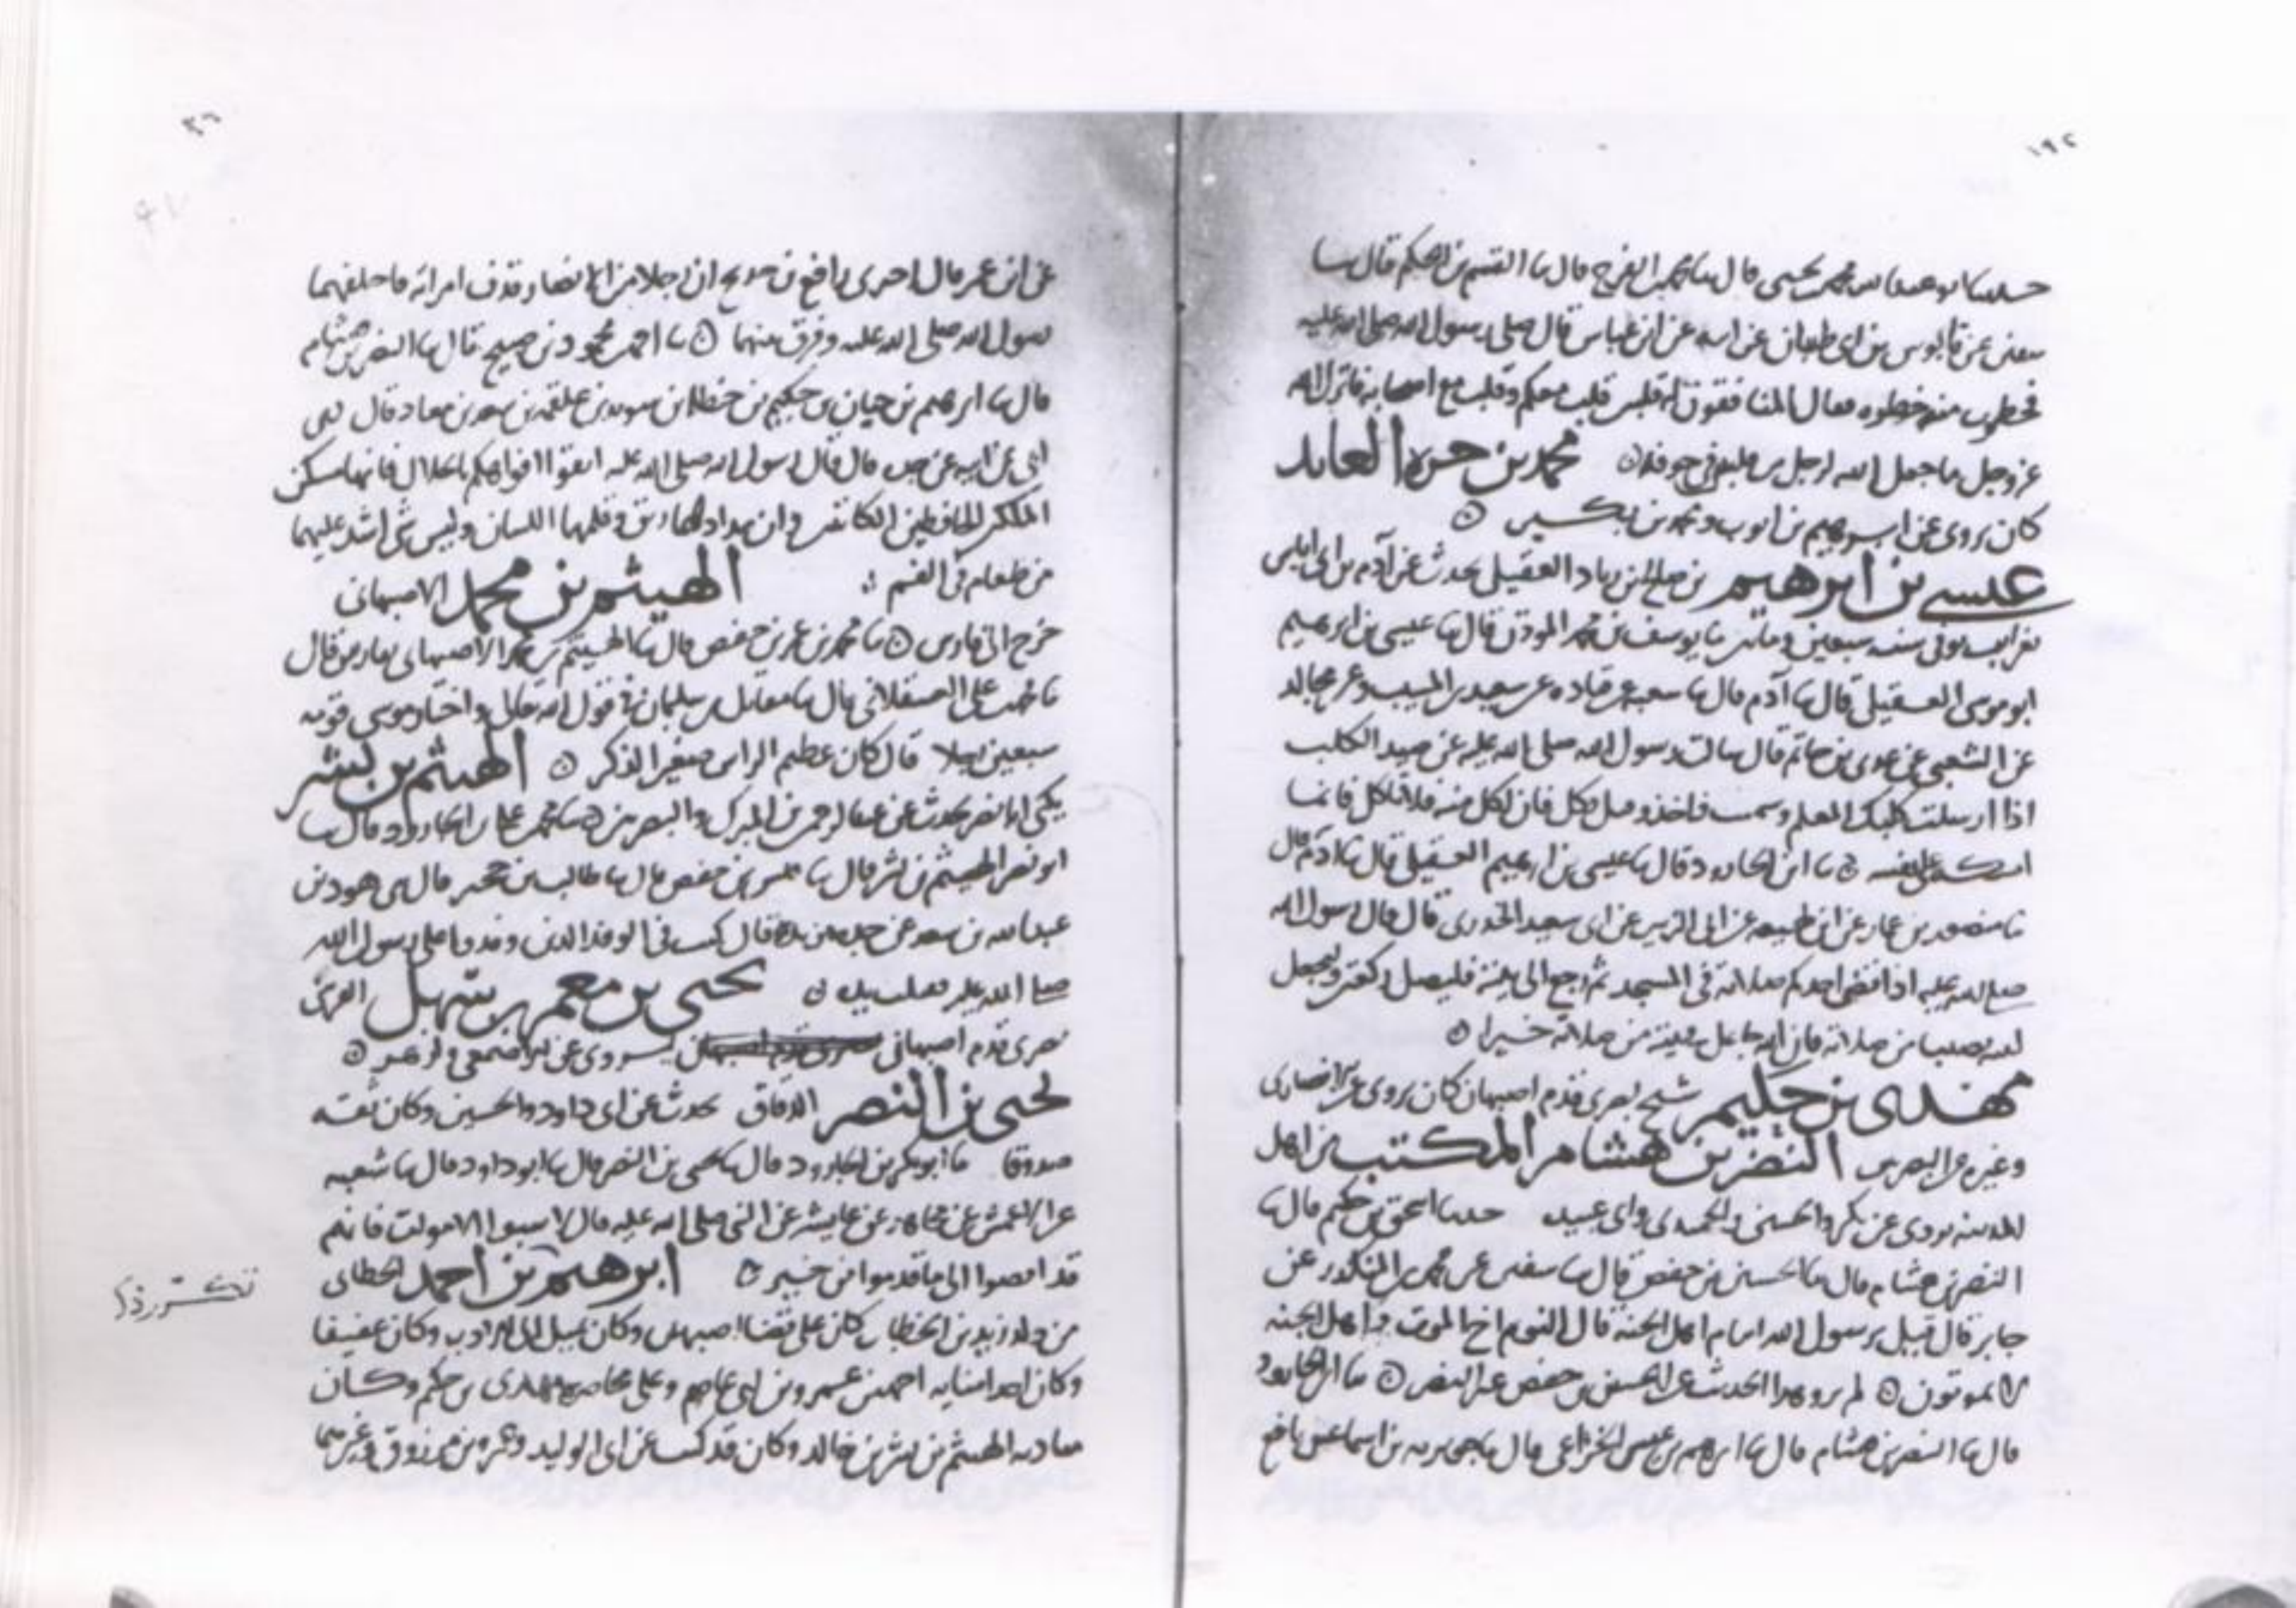 ١٩٢
حدثنا محمد بن يحيى قال ثنا محمد بن الفرج قال ثنا القسم بن الحكم قال ثنا
سفين عن قابوس بن ابي ظبيان عن ابيه عن ابن عباس قال صلى رسول الله صلى الله عليه
فخطرت منه خطره فقال المنافقون له قلبين قلب معكم وقلب مع اصحابه فانزل الله
عز وجل ما جعل الله لرجل من قلبين في جوفه محمد بن حمزه العابد
كان يروى عن ابرهيم بن ايوب و بن بكير
عيسى بن ابرهيم بن صالح بن زياد العقيلي يحدث عن آدم بن ابي اياس
بغرايب توفي سنه سبعين ومائتين ثنا يوسف بن محمد المؤذن قال ثنا عيسى بن ابرهيم
ابو موسى العقيلي قال ثنا آدم قال ثنا شعبه عن قتاده عن سعيد بن المسيب وعن مجالد
عن الشعبي عن عدى بن حاتم قال سالت رسول الله صلى الله عليه عن صيد الكلب
اذا ارسلت كلبك المعلم وسميت فاخذ وقتل فكل فان اكل منه فلا تاكل فانما
امسك على نفسه ثنا ابن الجارود قال ثنا عيسى بن ابرهيم العقيلي قال ثنا آدم قال
ثنا منصور بن عمار عن ابن لهيعه عن ابي الزبير عن ابي سعيد الخدرى قال قال رسول الله
صلى الله عليه اذا قضى احدكم صلاته في المسجد ثم رجع الى بيته فليصل ركعتين وليجعل
لبيته نصيبا من صلاته فان الله جاعل في بيته من صلاته خيرا
مهدى بن حكيم شيخ بصرى قدم اصبهان كان يروى عن الانصارى
وغيره من البصريين النضر بن هشام المكتب من اهل
المدينه يروى عن بكر والحسين والحميدى وابي عبيد حدثنا اسحق بن حكيم قال ثنا
النضر بن هشام قال ثنا الحسين بن حفص قال ثنا سفين عن محمد بن المنكدر عن
جابر قال قيل يرسول الله اينام اهل الجنه قال النوم اخ الموت واهل الجنه
لا يموتون لم يرو هذا الحديث عن الحسين بن حفص غير النضر ثنا ابن الجارود
قال ثنا النضر بن هشام قال ثنا ابرهيم بن عيسى قال ثنا جويريه بن اسما عن نافع
عن ابن عمر قال اخبرني رافع بن خديج ان رجلا من الانصار قذف امراته فاحلفهما
رسول الله صلى الله عليه وفرق بينهما ثنا احمد بن محمود بن صبيح قال ثنا النضر بن هشام
قال ثنا ابرهيم بن حيان بن حكيم بن حنظله بن سويد بن علقمه بن سعد بن معاد قال ثني
ابي عن ابيه عن جده قال قال رسول الله صلى الله عليه انقوا افواهكم بالخلال فانها مسكن
الملكين الحافظين الكاتبين وان مدادهما الريق وقلمهما اللسان وليس شى اشد عليهما
من طعام في الفم الهيثم بن محمد الاصبهاني
خرج الى فارس ثنا محمد بن عمر بن حفص قال ثنا الهيثم بن محمد الاصبهاني بفارس قال
ثنا محمد بن على العسقلاني قال ثنا مقاتل بن سليمان في قول الله تعالى واختار موسى قومه
سبعين رجلا قال كان عظيم الراس صغير الذكر الهيثم بن بشر
يكنى ابا نصر يحدث عن عبد الرحمن بن المبرك والبصريين ثنا محمد بن على بن الجارود قال ثنا
ابو نصر الهيثم بن بشر قال ثنا بن حفص قال ثنا طالب بن حجير قال ثني هود بن
عبد الله بن سعد عن جده قال كنت في الوفد الذين وفدوا على رسول الله
صلى الله عليه فقبلت يده يحيى بن معمر بن سهل
بصرى قدم اصبهان يروى عن الاصمعي وازهر
يحيى بن النضر الدقاق يحدث عن ابي داود والحسين وكان ثقه
صدوقا ثنا ابو بكر بن الجارود قال ثنا يحيى بن النضر قال ثنا ابو داود قال ثنا شعبه
عن الاعمش عن مجاهد عن عايشه عن النبي صلى الله عليه قال لا تسبوا الاموات فانهم
قد افضوا الى ما قدموا من خير ابرهيم بن احمد الخطابي
من ولد زيد بن الخطاب كان على قضا اصبهان وكان يميل الى الادب وكان عفيفا
وكان احد امنايه احمد بن عمرو بن ابي عاصم وعلى بن حكيم وكان
صاحبه الهيثم بن بشر بن خالد وكان قد كتب عن ابي الوليد وعمرو بن مرزوق وغيرهما